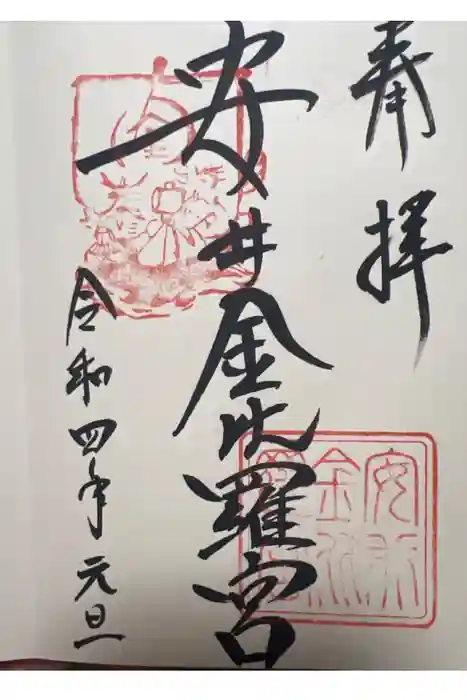 奉拝
安井金比羅宮
令和四年元旦